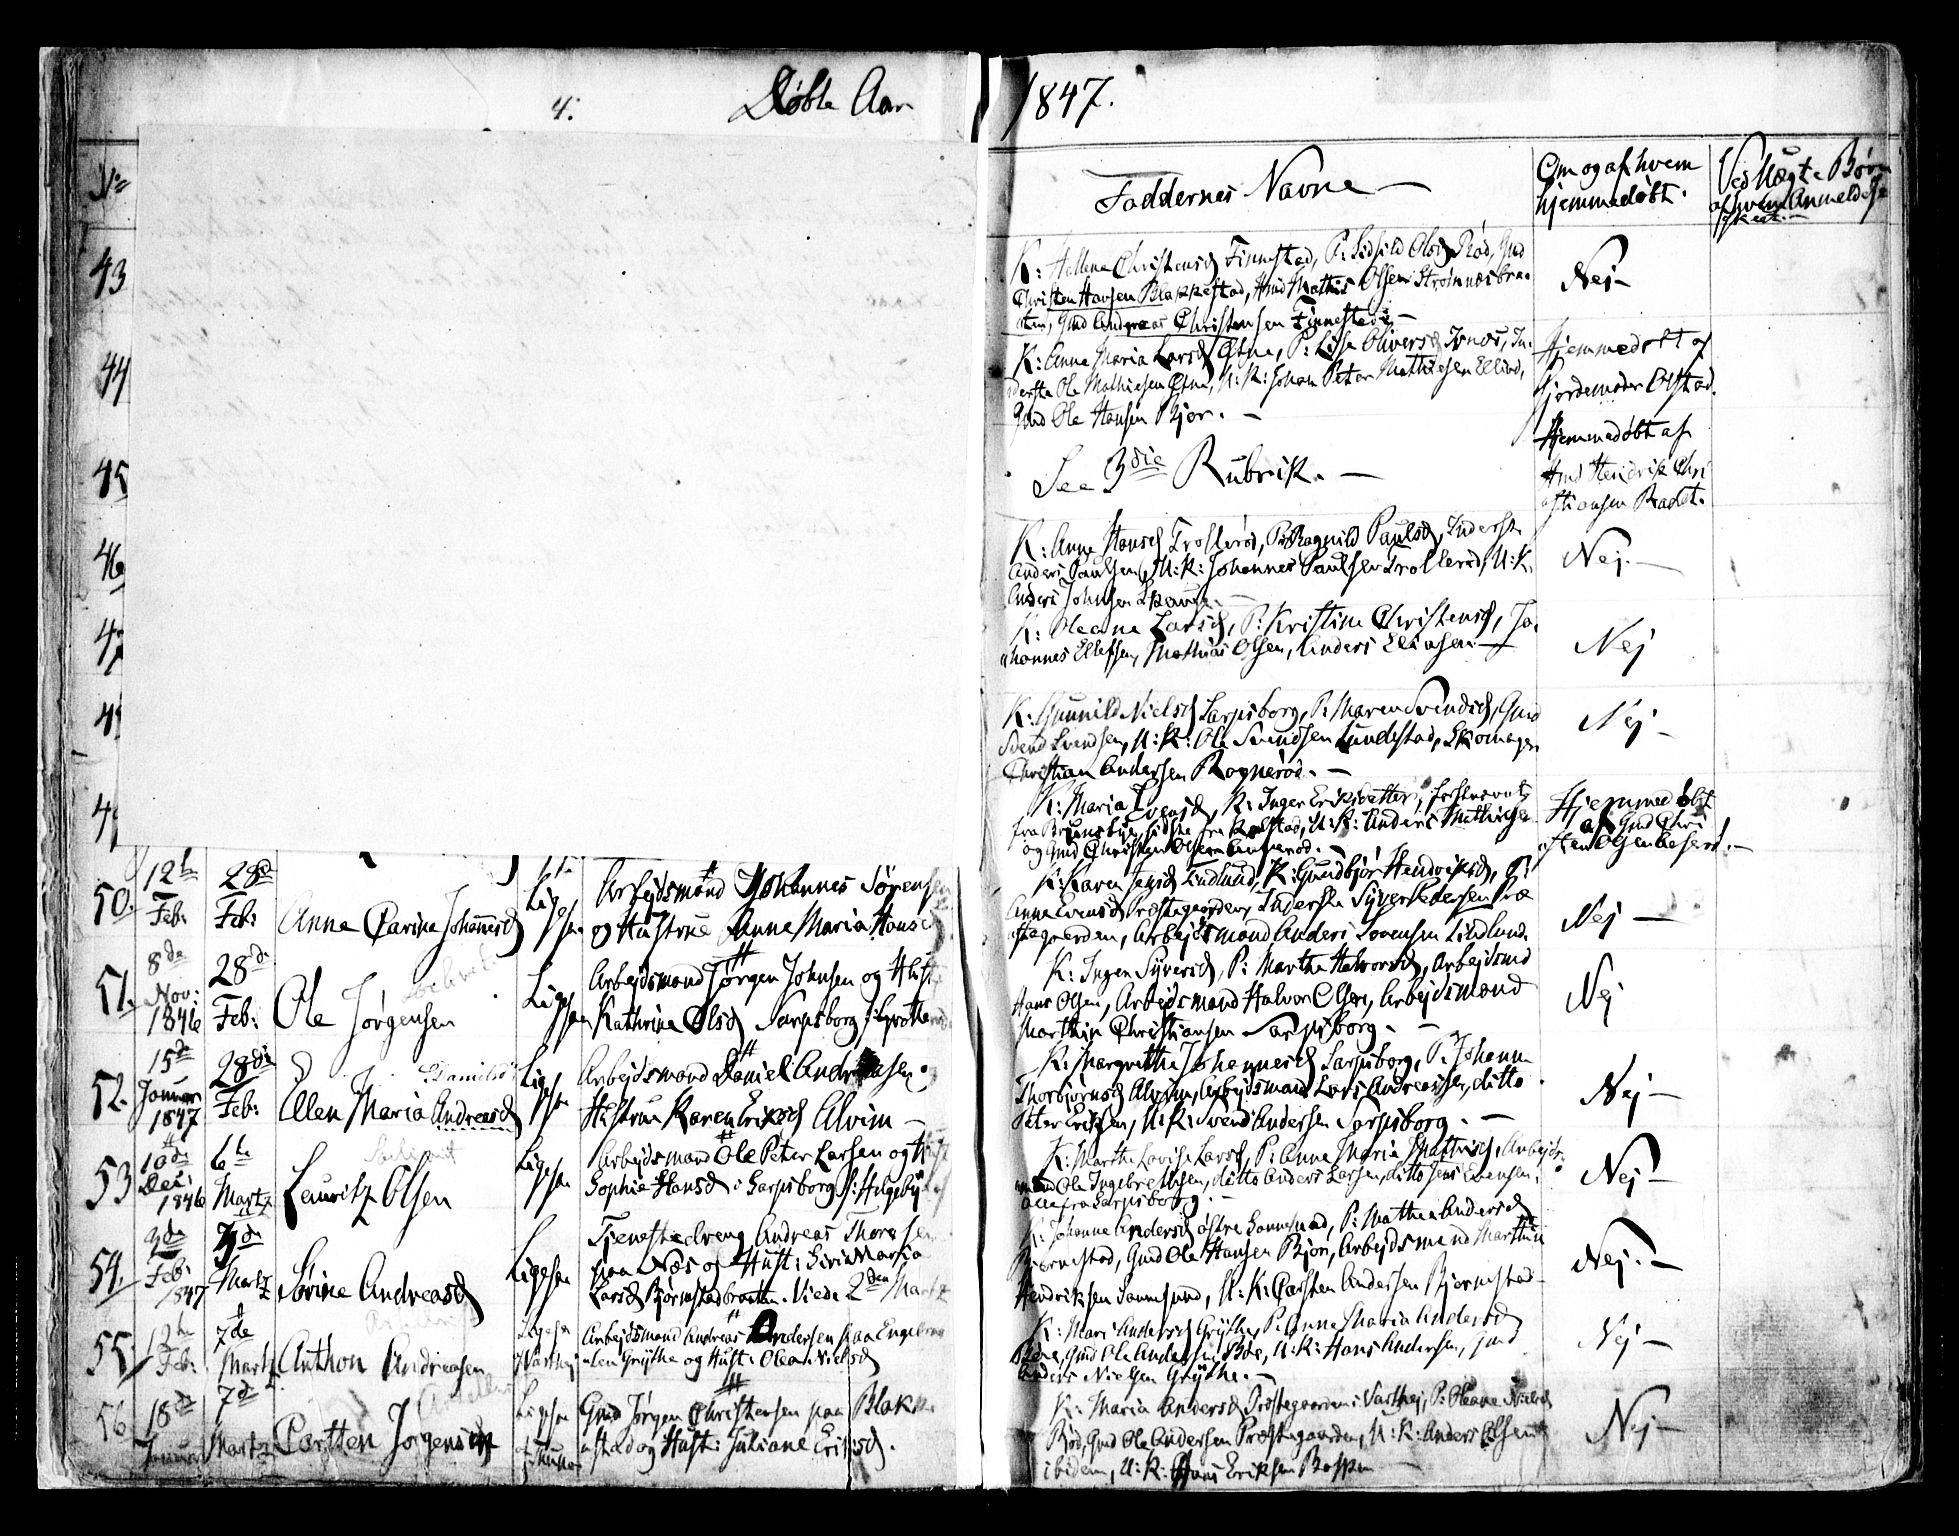 4.
Døbte Aar
1847.
No
Faddernes Navne
Om og af hvem
hjemmedøbt.
Ved Uægte Børn
af hvem Anmeldelse
skeet.
43
K: Hellene Christensd Finnestad, P: Sidsild Olsd Rød, Gmd
Christen Hansen Blakkestad, Hmd Mathis Olsen Strømnesbraa-
ten, Gmd Andreas Christensen Finnestad
Nei
44
K: Anne Maria Larsd P: Lisa Oliversd In-
dersten Ole Mathiesen U: K: Johan Peter Mathiesen
Gmd Ole Hansen Bjør.
Hjemmedøbt af
Gjordemoder Olstad.
45
See 3die Rubrik.
Hjemmedøbt af
Hmd Hendrik Chri
stiansen
46
K: Anne Hansd Trollerød, P: Ragnild Paulsd, Inderste
Anders Paulsen, U: K: Johannes Paulsen Trollerød, U: K.
Anders Johnsen
Nej.
47
K: Oleane Larsd, P: Kristine Christensd, Jo-
hannes Ellefsen, Mathias Olsen, Anders Eliasen
Nej
K: Gunnild Nielsd Sarpsborg, P: Maren Svendsd, Gmd
Svend Svendsen, U: K: Ole Svendsen Lundestad, Skomager
Christian Andersen Rognerød.
Nej
K: Maria P: Inger Eriksdatter,
fra U: K: Anders Mathiesen
og Gmd Christian Olsen
Hjemmedøbt
af Gmd Chri
sten Olsen
50.
12te
Feb:
28de
Feb:
Anne Carine Johannesd
Ligesaa
Arbejdsmand Johannes Sørensen
og Hustrue Anne Maria Hansd
K: Karen Jensd Lindlund, K: Gundbjør Hendriksd, P:
Anne Evensd Præstegaarden, Inderste Syver Pedersen Præ
stegaarden, Arbejdsmand Anders Sørensen Lindlund.
Nej
51.
8de
Nov:
1846
28de
Feb:
Ole Jørgensen
Ligesaa
Arbejdsmand Jørgen Johnsen og Hust
Kathrine Olsd Sarpsborg
K: Inger Syversd, P: Marthe Halvorsd, Arbejdsmd
Hans Olsen, Arbejdsmand Halvor Olsen, Arbejdsmand
Marthin Christiansen Sarpsborg.
Nej
52.
15de
Januar
1847
28de
Feb:
Danielsd
Ellen Maria Andreasd
Ligesaa
Arbejdsmand Daniel Andreasen og
Hustrue Karen Eriksd Alvim
K: Margrethe Johannesd Sarpsborg, P: Johanne
Thorbjørnsd Alvim, Arbejdsmand Lars Andreassen, ditto
Peter Eriksen, U: K: Svend Andersen Sarpsborg.
Nej
53
10de
Dec:
1846
6te
Martz
Lauritz Olsen
Ligesaa
Arbejdsmand Ole Peter Larsen og
Sophie Hansd i Sarpsborg
K: Marthe Lovise Larsd, P: Anne Maria Mathisd, Arbejds-
mand Ole Ingebrethsen, ditto Anders Larsen, ditto Jens Evensen,
alle fra Sarpsborg.
Nej
54.
3de
Feb:
1847
7de
Martz
Sørine Andreasd
Ligesaa
Tjenestedreng Andreas Thoresen
paa Næs og Hust: Sivia Maria
Larsd Bjørnstadbraaten. Viede 2den Martz
K: Johanne Andersd østre Sannesund, P: Mathea Andersd
Bjørnstad, Gmd Ole Hansen Bjør, Arbejdsmand Marthin
Hendriksen Sannesund, U: K: Carsten Andersen Bjørnstad
Nej.
55.
12te
Feb:
7de
Martz
Anthon Andreasen
Ligesaa
i Varthej
Arbejdsmand Andreas Andersen paa
Grythe og Hust: Oleane Nielsd
K: Mari Andersd Grythe, P: Anne Maria Andersd
Bøe, Gmd Ole Andersen Bøe, U: K: Hans Andersen, Gmd
Anders Nielsen Grythe.
Nej
56
18de
Januar
7de
Martz
Carsten Jørgensen
Ligesaa
Gmd Jørgen Christensen paa Blakke
stad og Hust: Juliane Eriksd.
K: Maria Andersd Præstegaarden i Varthej, P: Oleane Nielsd
Rød, Gmd Ole Andersen Præstegaarden, U: K: Anders Olsen
ibidem, U: K: Hans Eriksen
Nej